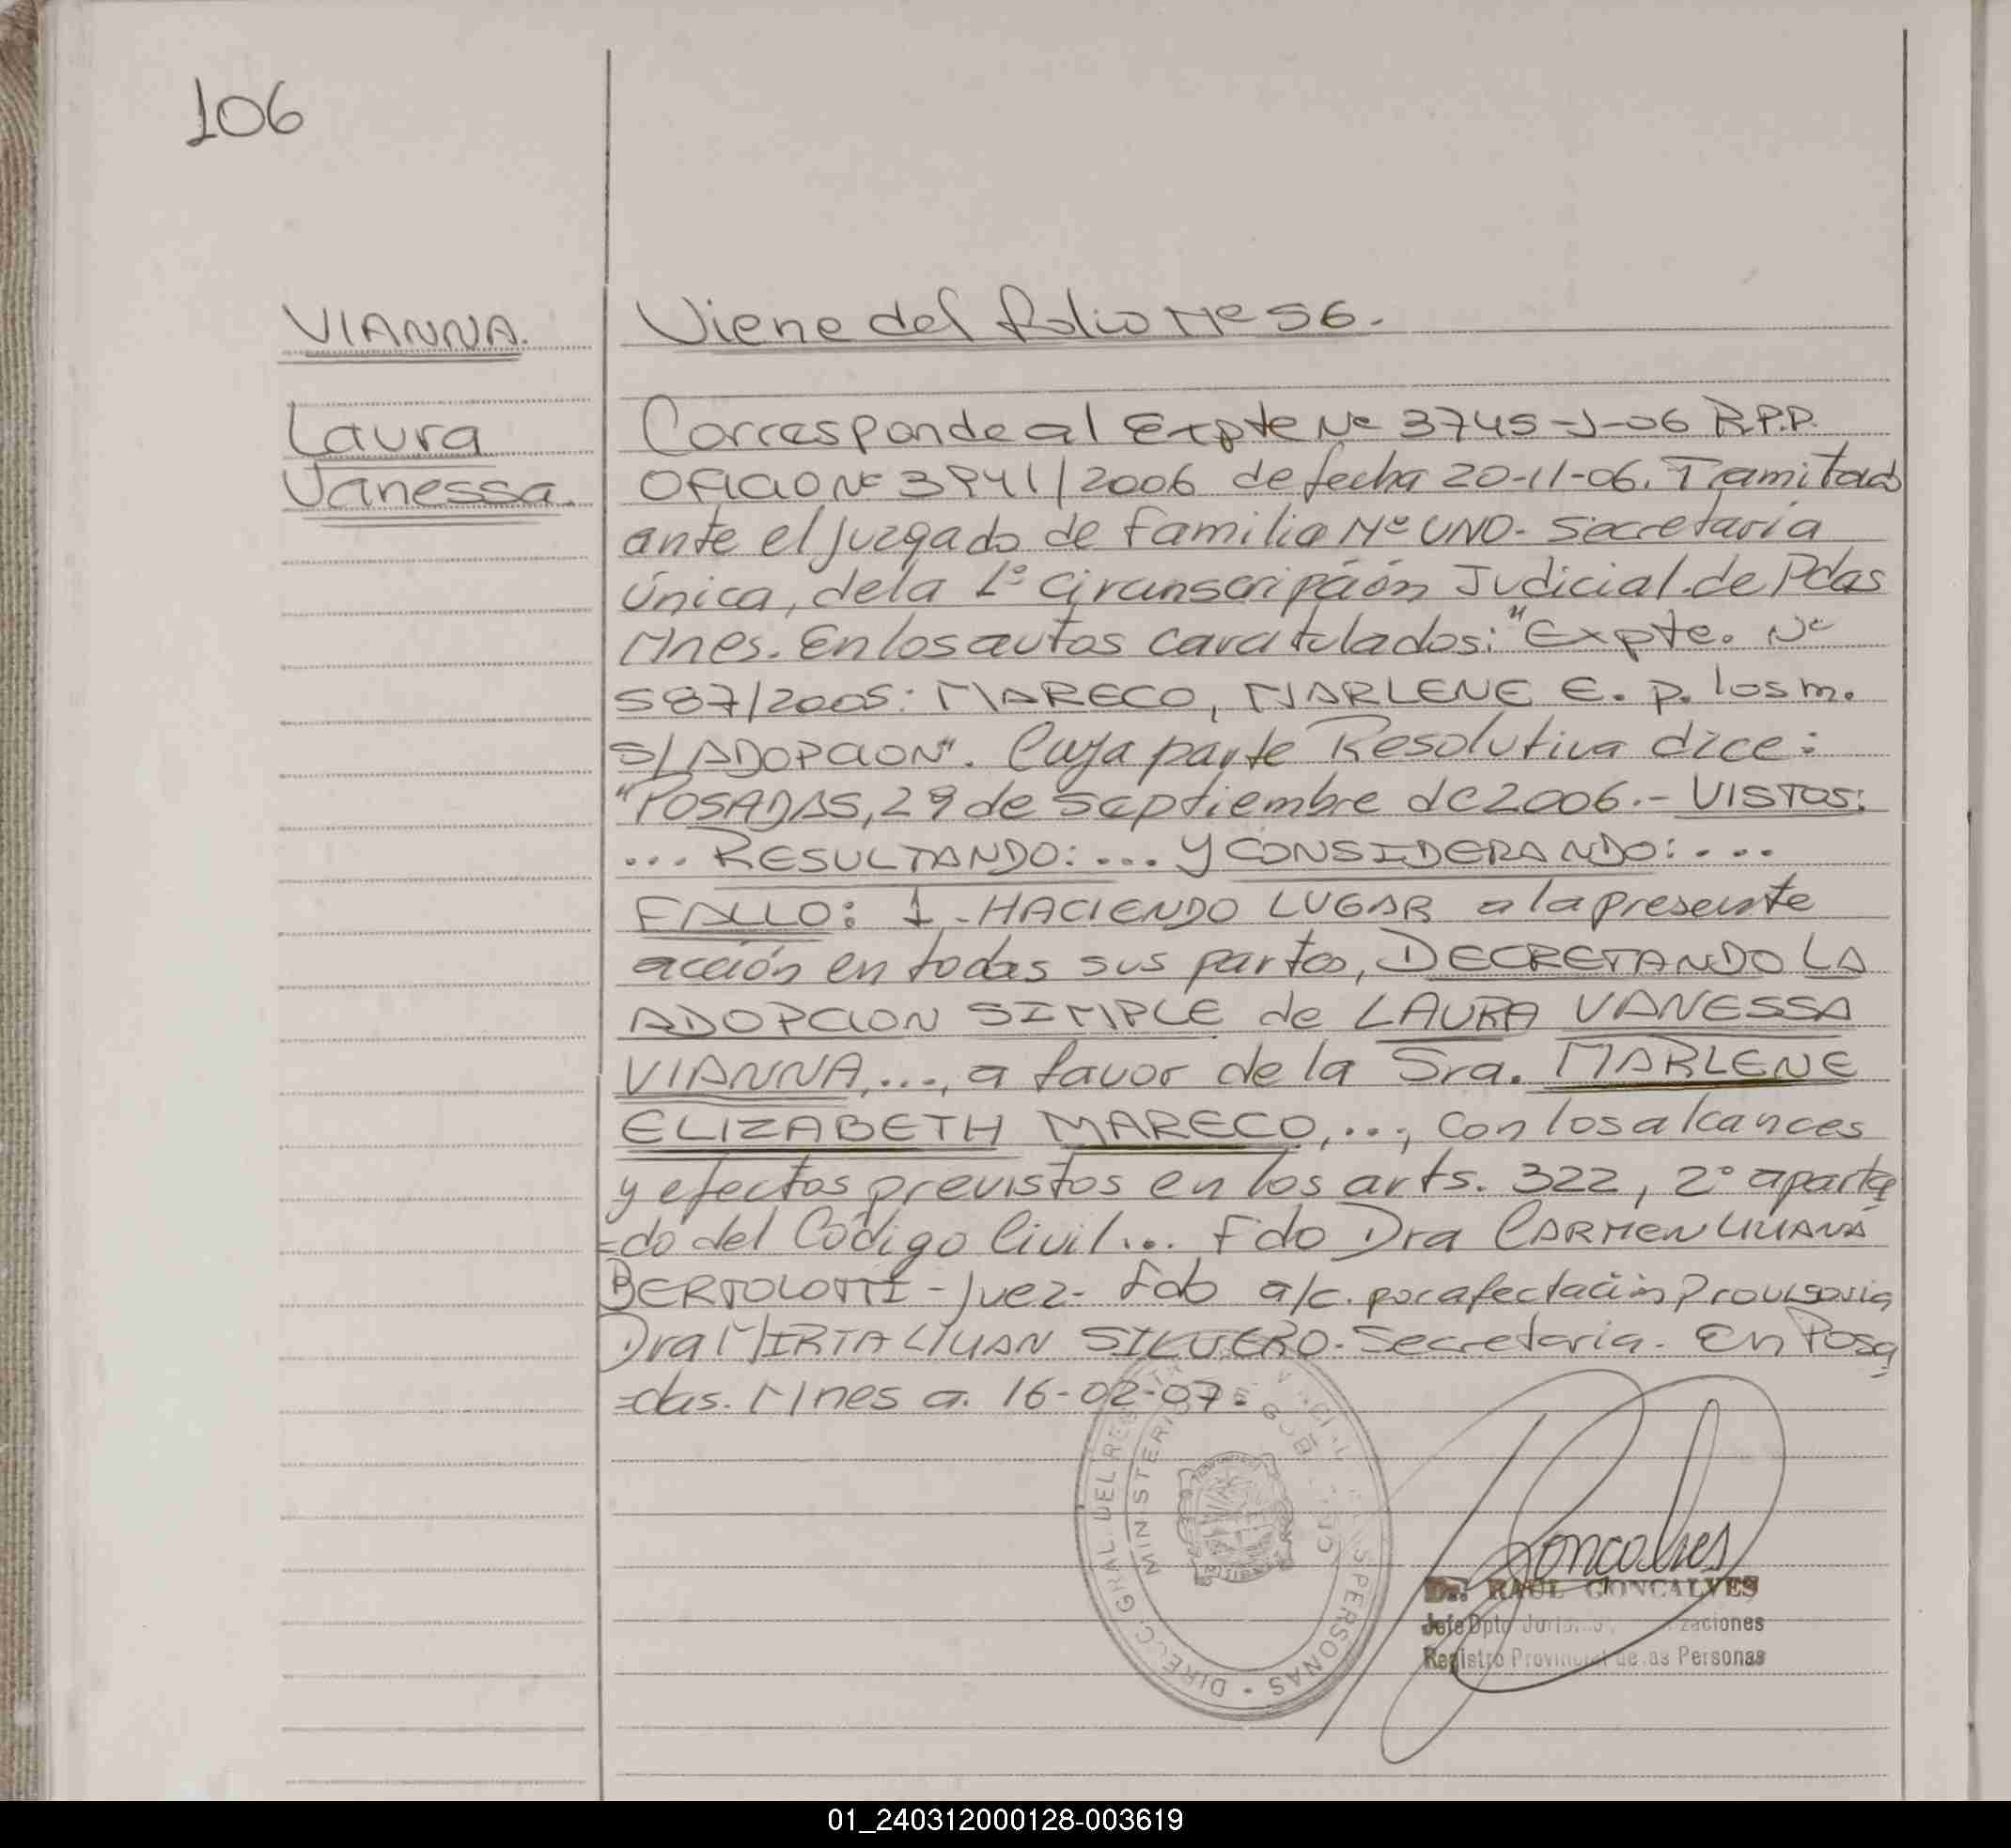 106
VIANNA.
Laura
Vanessa.
Viene del folio Nº 56.
Corresponde al Expte Nº 3745-J-06 R.P.P.
OFICIO Nº 3941/2006 de fecha 20-11-06. Tramitado
ante el Juzgado de familia Nº UNO- Secretaría
Única, de la 1º Circunscripción Judicial de Pdas
Mnes. En los autos caratulados: "Expte. Nº
587/2005: MARECO, MARLENE E. p. los m.
S/ADOPCION". Cuya parte Resolutiva dice:
"POSADAS, 29 de septiembre de 2006.- VISTOS:
... RESULTANDO: ... y CONSIDERANDO: ...
FALLO: 1-HACIENDO LUGAR a la presente
acción en todas sus partes, DECRETANDO LA
ADOPCION SIMPLE de LAURA VANESSA
VIANNA, ..., a favor de la Sra. MARLENE
ELIZABETH MARECO, ..., con los alcances
y efectos previstos en los arts. 322, 2º aparta
-do del Código Civil... Fdo Dra CARMEN LILIANA
BERTOLOTTI - Juez- Fdo a/c. por afectación Provisoria
Dra MIRTA LILIAN SILVERO- Secretaria- En Posa
-das. Mnes a. 16-02-07.
DIRECC. GRAL. DEL PERSONAS
MINISTERIO DE GOBIERNO
Goncalves
Dr. RAUL GONCALVES
Jefe Dpto
Registro Provincial de las Personas
01_240312000128-003619